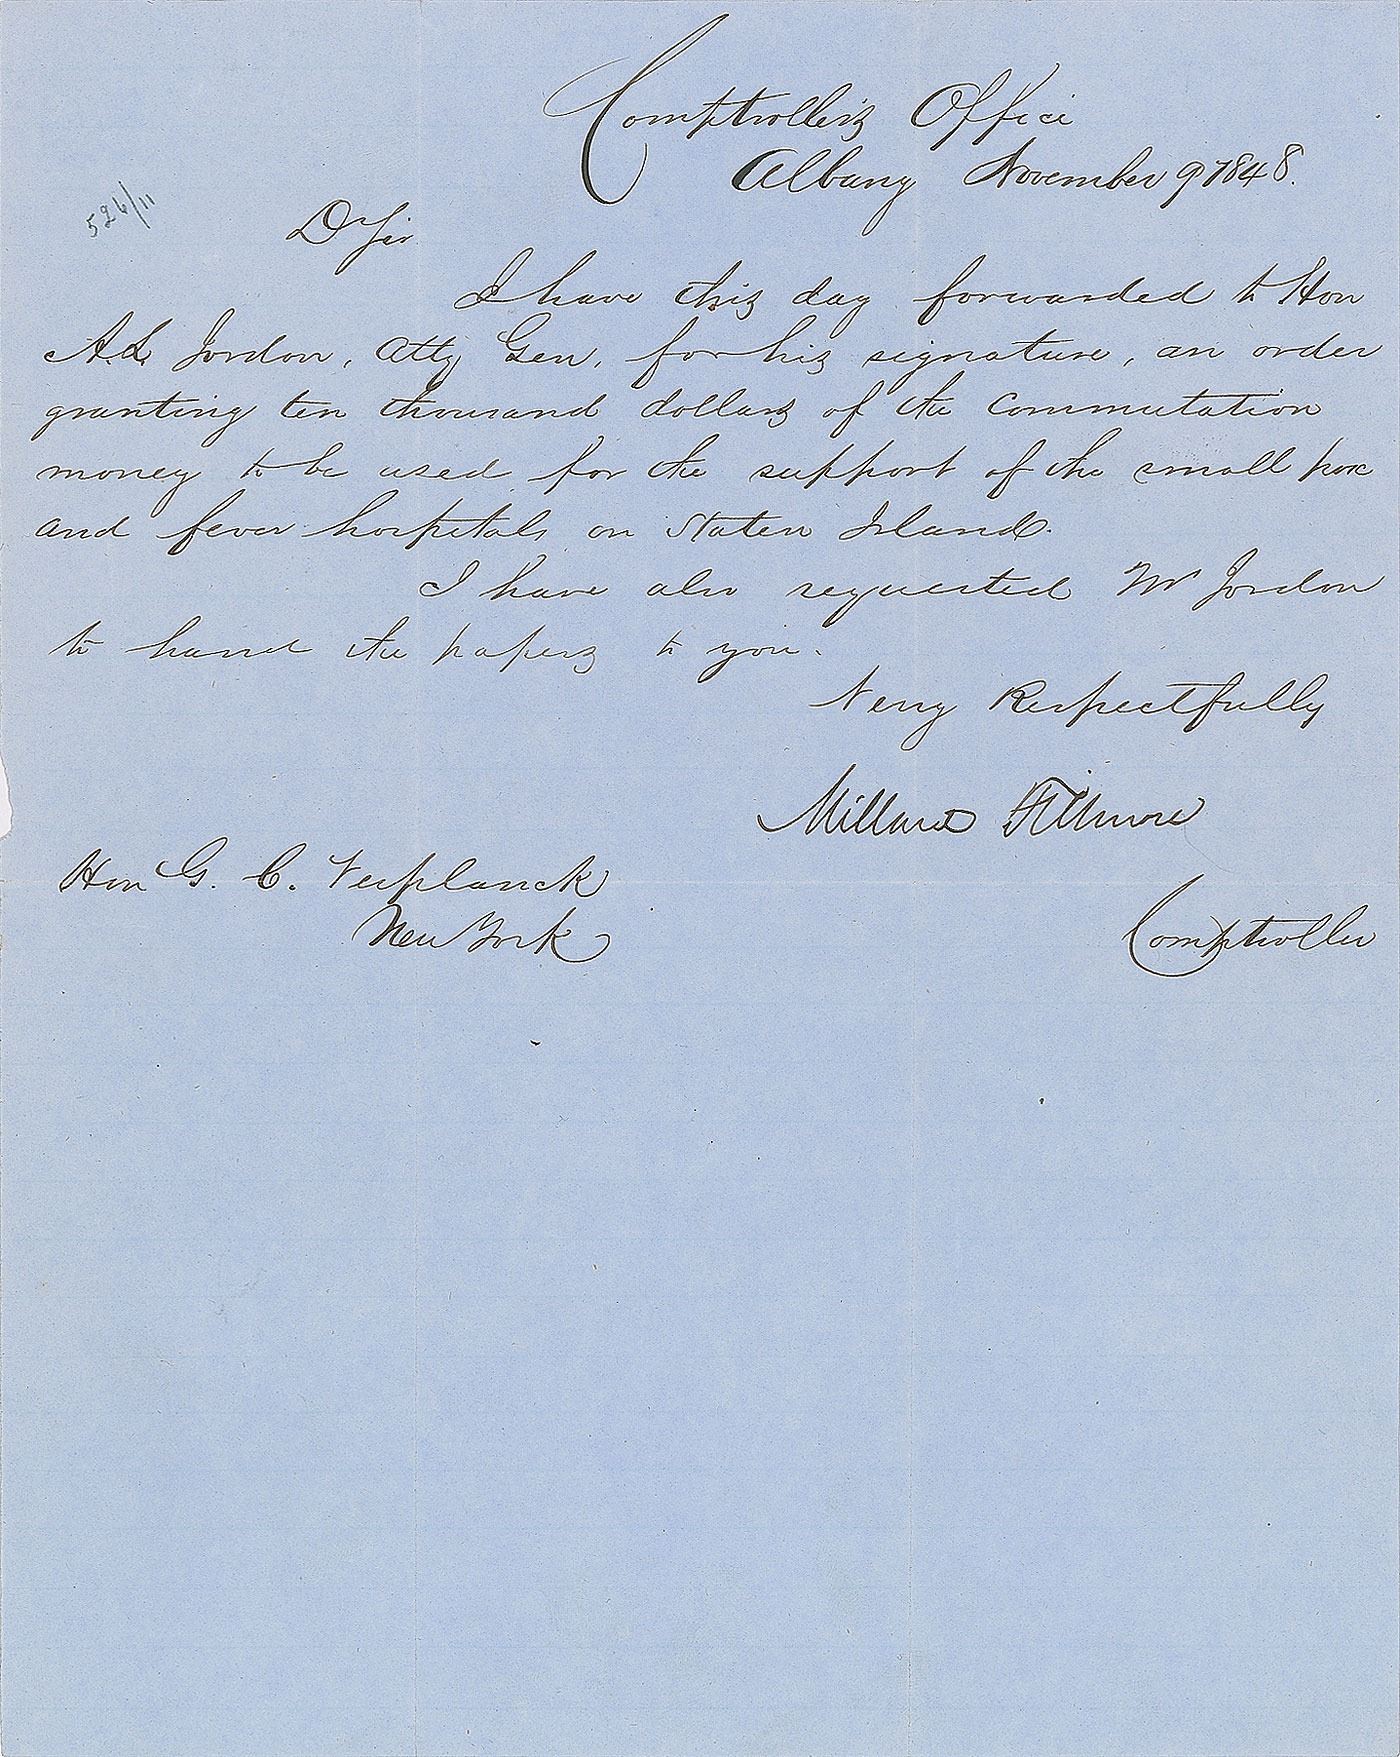 Comptroller's Office
Albany November 9 1848.
526/11
D Sir
I have this day forwarded to Hon
A. L. Jordon, Atty Gen, for his signature, an order
granting ten thousand dollars of the Commutation
money to be used for the support of the small pox
and fever hospitals on Staten Island.
I have also requested Mr Jordon
to hand the papers to you.
Very Respectfully
Millard Fillmore
Hon G. C. Verplanck
New York
Comptroller